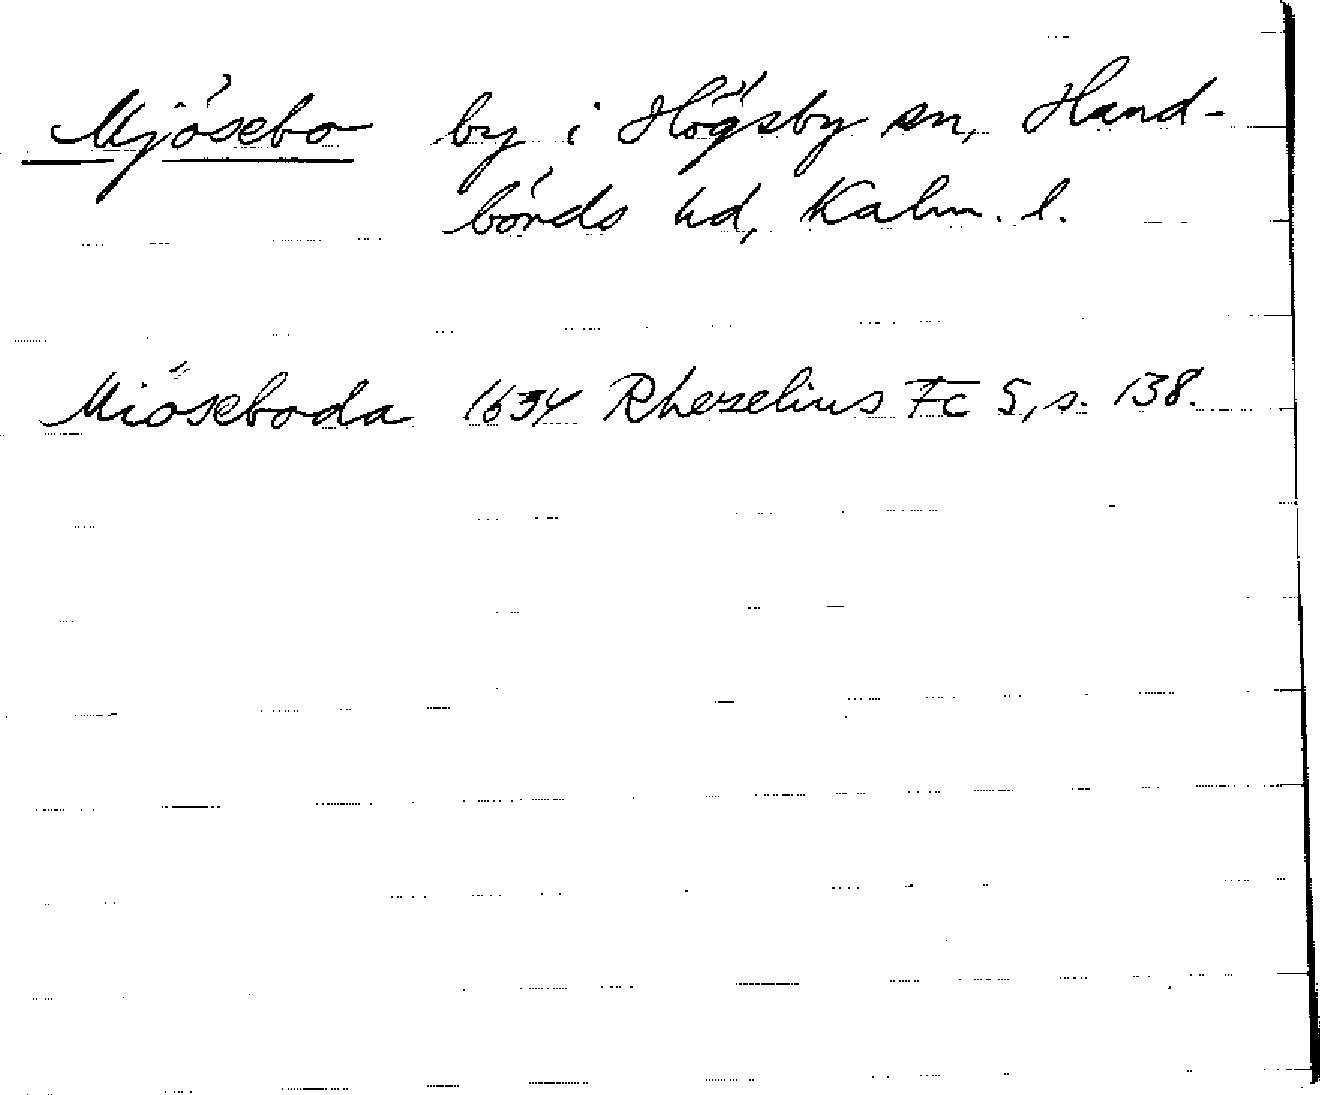 Mjösebo by i Högsby sn, Hand-
börds hd, Kalm. l.
Miöseboda 1634 Rhezelius Fc 5, s. 138.